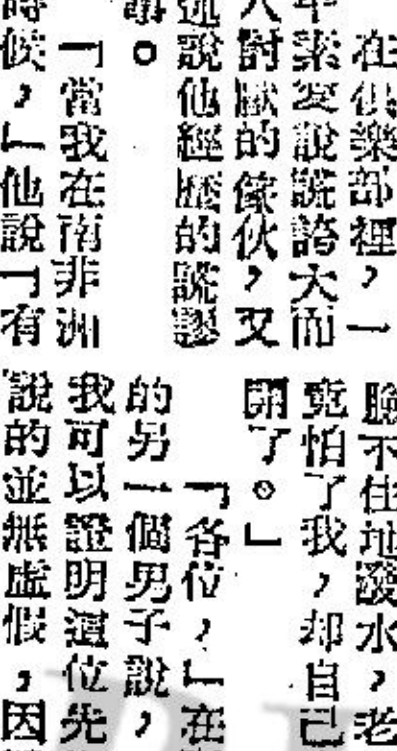 在俱樂部裡，一
年素愛說謊誇大而
人討厭的傢伙，又
述說他經歷的說謬
事。
「當我在南非洲
時候，」他說「有
臉不住地潑水，老
竟怕了我，却自己
開了。」
「各位，」在
的另一個男子說，
我可以證明這位先
說的並無虛假，因